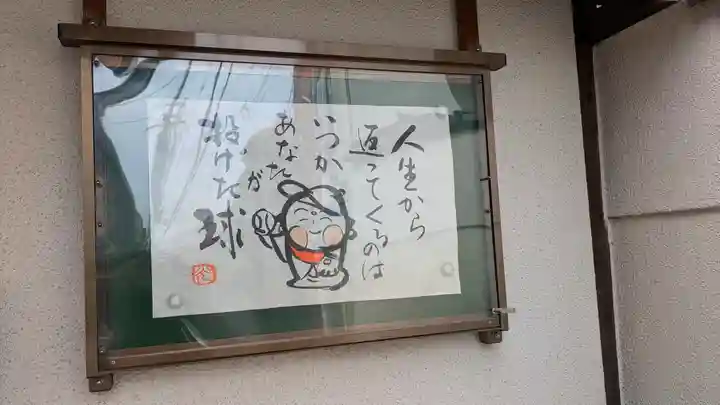 人生から
返ってくるのは
いつか
あなたが
投げた球